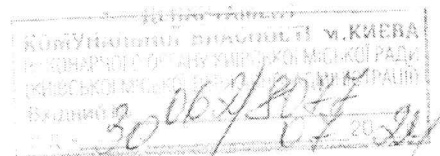 ДЕПАРТАМЕНТ
КОМУНАЛЬНОЇ ВЛАСНОСТІ м.КИЄВА
ВИКОНАВЧОГО ОРГАНУ КИЇВСЬКОЇ МІСЬКОЇ РАДИ
(КИЇВСЬКОЇ МІСЬКОЇ ДЕРЖАВНОЇ АДМІНІСТРАЦІЇ)
Вхідний № 062/3077
30 07 20 24